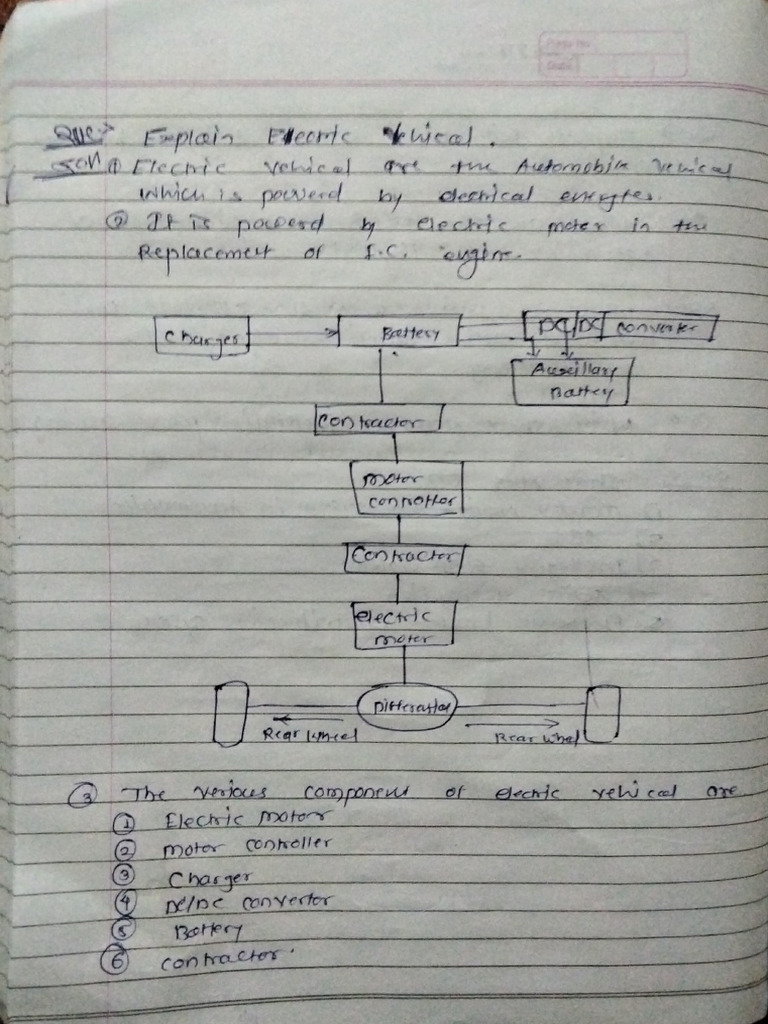 Que:- Explain Electric Vehical.
Soln ① Electric vehical are the Automobile vehical
which is powerd by electrical energies.
② It is powerd by electric motor in the
Replacement of I.C. engine.
Charger Battery DC/DC converter
Auxillary
Battery
Contractor
motor
controller
Contractor
electric
motor
Differential
Rear wheel Rear wheel
③ The verious component of electric vehical are
① Electric motor
② motor controller
③ Charger
④ DC/DC convertor
⑤ Battery
⑥ contractor.